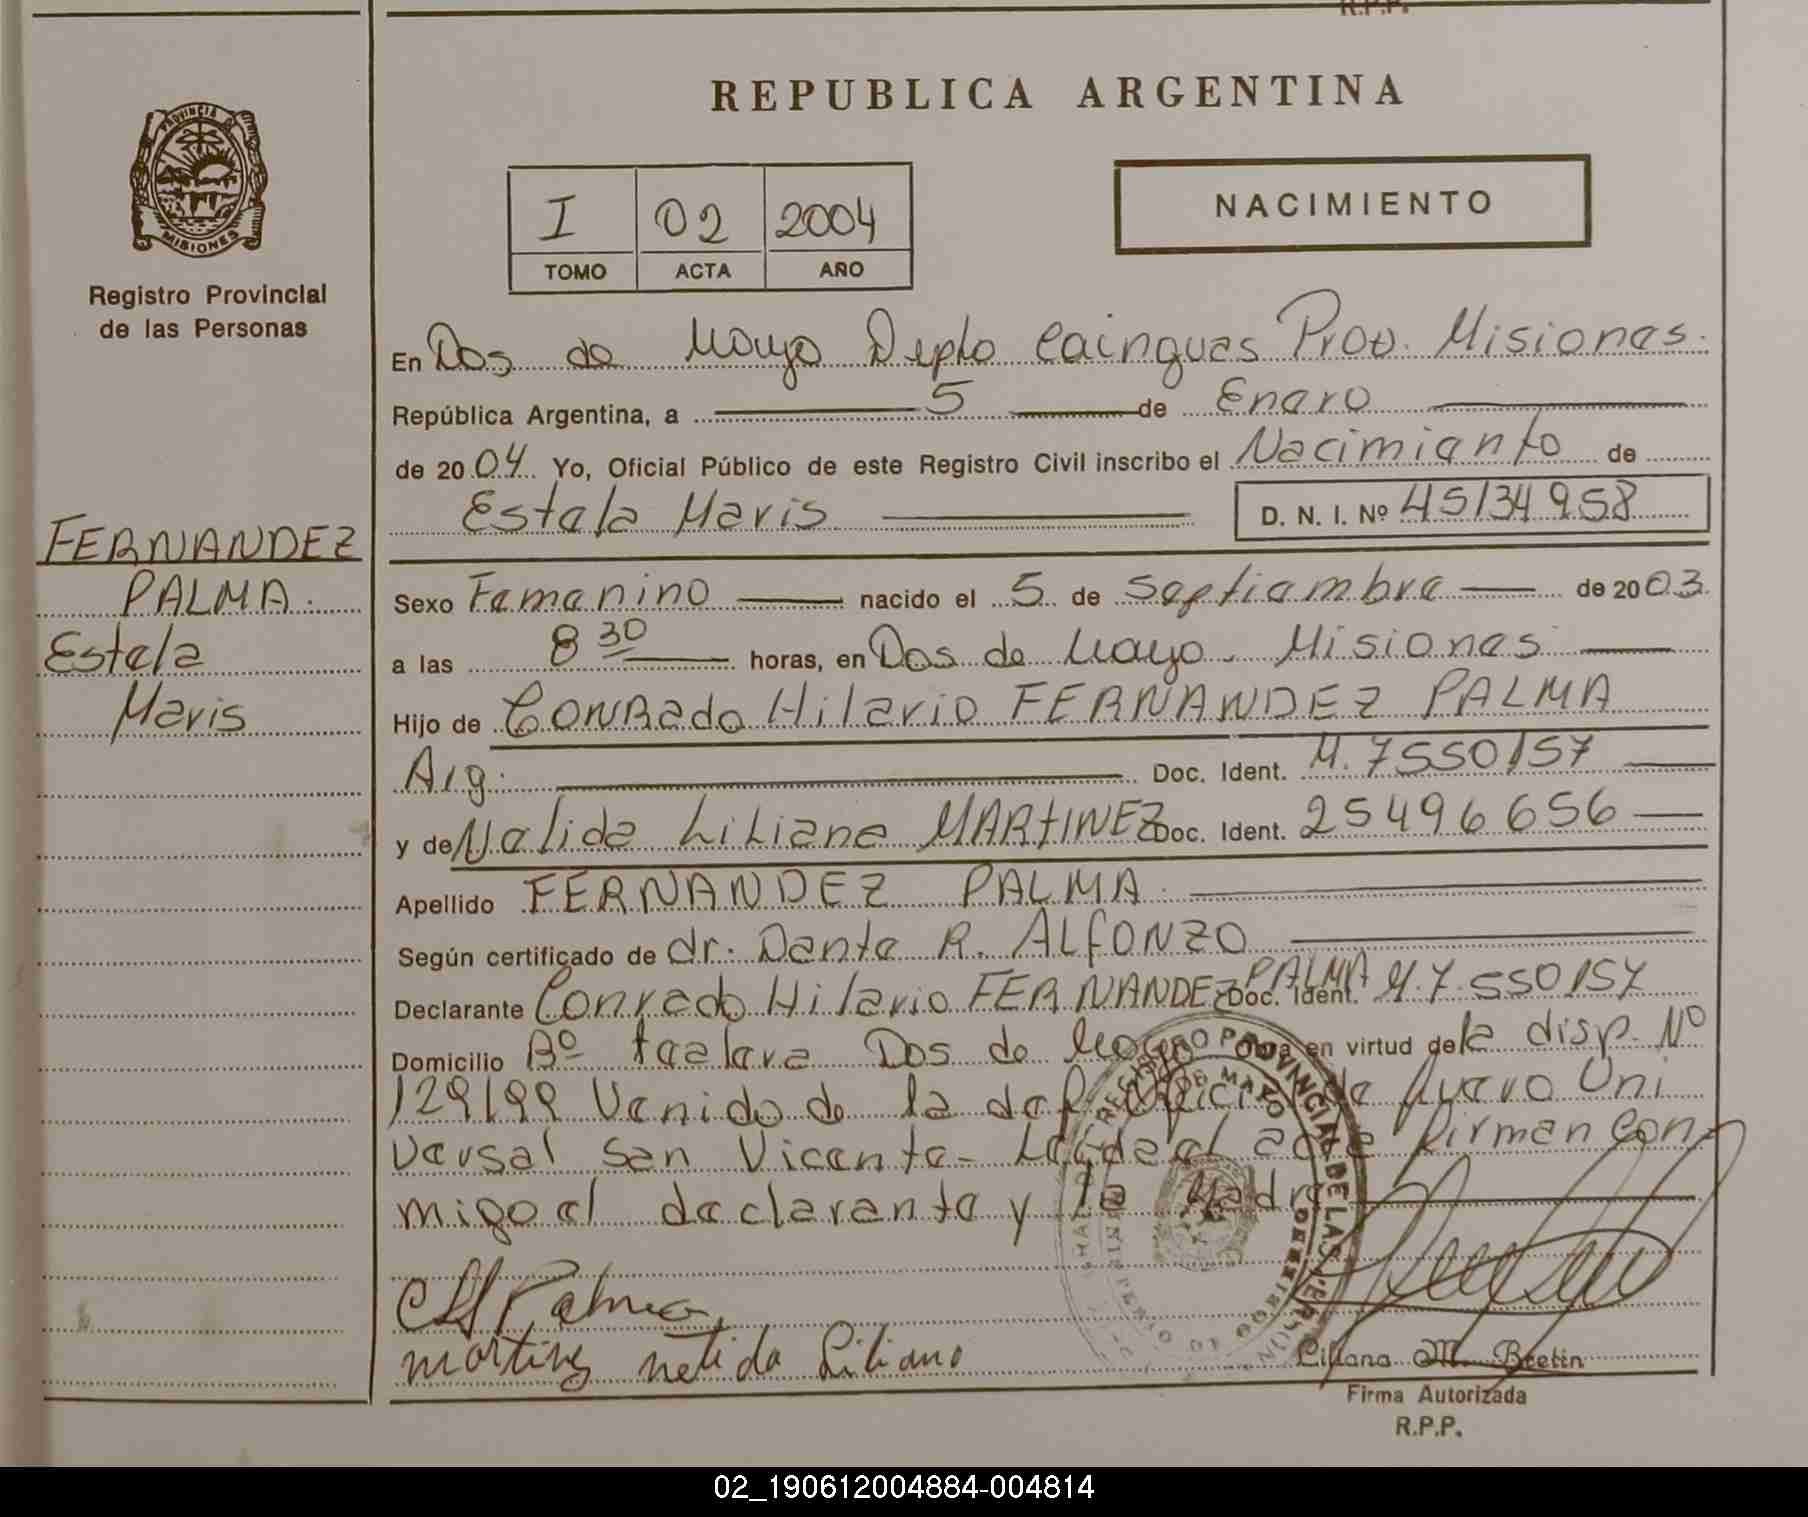 R.P.P.
REPUBLICA ARGENTINA
PROVINCIA DE
MISIONES
Registro Provincial
de las Personas
I 02 2004
TOMO ACTA AÑO
NACIMIENTO
En Dos de Mayo Depto Cainguas Prov. Misiones.
República Argentina, a 5 de Enero
de 2004 Yo, Oficial Público de este Registro Civil inscribo el Nacimiento de
Estela Maris D. N. I. Nº 45134958
FERNANDEZ
PALMA.
Estela
Maris
Sexo Femenino nacido el 5 de Septiembre de 2003.
a las 8 30 horas, en Dos de Mayo. Misiones
Hijo de Conrado Hilario FERNANDEZ PALMA
Arg. Doc. Ident. M. 7550157
y de Nelida Liliana MARTINEZ Doc. Ident. 25496656
Apellido FERNANDEZ PALMA.
Según certificado de dr. Dante R. ALFONZO
Declarante Conrado Hilario FERNANDEZ PALMA Doc. Ident. M. 7.550157
Domicilio Bº Dos de Mayo Obra en virtud de la disp. Nº
129/99 Venido de la de Nuevo Uni
versal San Vicente- Leida el acta firman con
migo el declarante y la Madre
REGISTRO PROVINCIAL DE LAS PERSONAS
DOS DE MAYO
MINISTERIO DE GOBIERNO
CH Palma
martinez nelida Liliana
Liliana M. Bretin
Firma Autorizada
R.P.P.
02_190612004884-004814